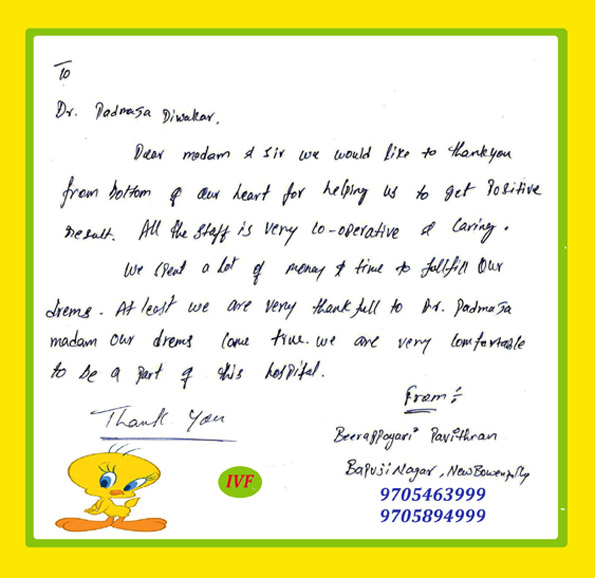 To
Dr. Padmaja Diwakar,
Dear madam & sir we would like to thankyou
from bottom of our heart for helping us to get Positive
result. All the staff is very co-operative & caring.
We spent a lot of money & time to fullfill our
drems. At least we are very thankfull to Dr. Padmaja
madam our drems come true. we are very comfortable
to be a part of this hospital.
Thank You
From :-
Beerappagari Pavithran
Bapuji Nagar, New Bowenpally
IVF
9705463999
9705894999